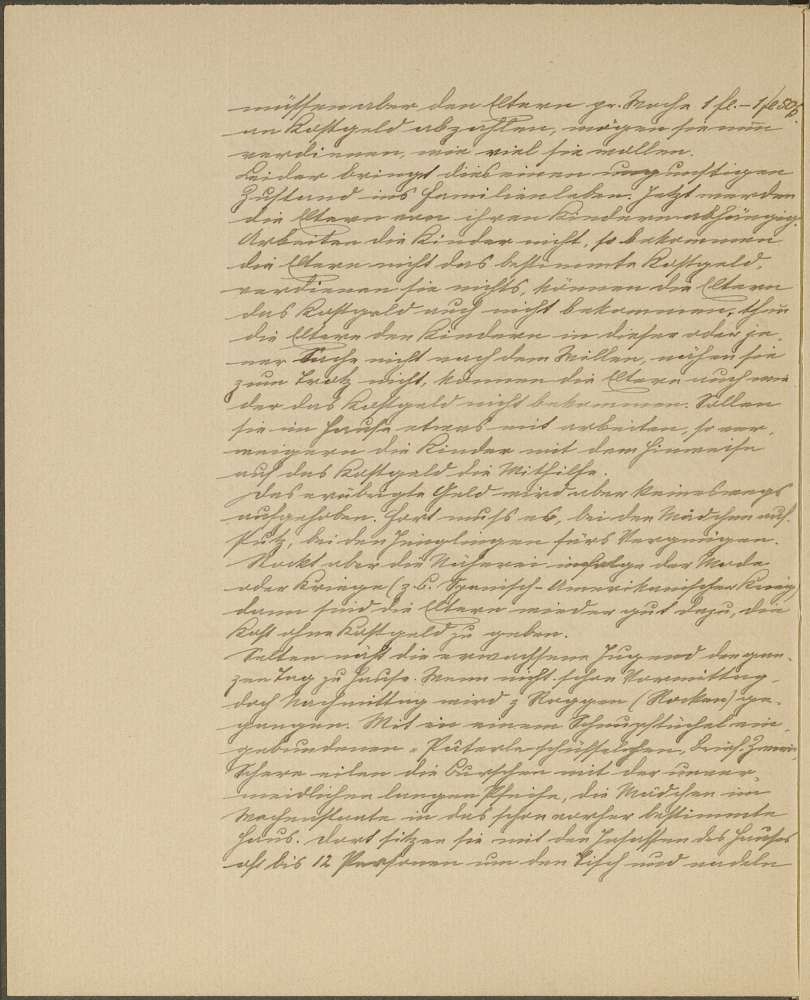 müssen aber den Eltern pr. Woche 1 fl. – 1 fl 50 
an Kostgeld abzahlen, mögen sie nun
verdienen, wie viel sie wollen.
Leider bringt dies einen ungünstigen
Zustand ins Familienleben. Jetzt werden
die Eltern von ihren Kindern abhängig.
Arbeiten die Kinder nicht, so bekommen
die Eltern nicht das bestimmte Kostgeld,
verdienen sie nichts, können die Eltern
das Kostgeld auch nicht bekommen, thun
die Eltern den Kindern in dieser oder je-
ner Sache nicht nach dem Willen, nähen sie
zum Trotz nicht, können die Eltern auch wie
der das Kostgeld nicht bekommen. Sollen
sie im Hause etwas mit arbeiten, so ver-
weigern die Kinder mit dem Hinweise
auf das Kostgeld die Mithilfe.
Das erübrigte Geld wird aber keineswegs
aufgehoben. Fort muss es, bei den Mädchen auf
Putz, bei den Jünglingen fürs Vergnügen.
Stockt aber die Näherei infolge der Mode
oder Kriege (z. B. Spanisch-Amerikanischer Krieg)
dann sind die Eltern wieder gut dazu, die
Kost ohne Kostgeld zu geben.
Selten näht die erwachsene Jugend den gan-
zen Tag zu Hause. Wenn nicht schon Vormittag,
doch Nachmittag wird z Roggen (Rocken) ge-
gangen. Mit in einem Schnupftüchel ein-
gebundenen "Paterlschüsselchen,
Schere eilen die Burschen mit der unver-
meidlichen langen Pfeife, die Mädchen im
Wochenstaate in das schon vorher bestimmte
Haus. Dort sitzen sie mit den Insassen des Hauses
oft bis 12 Personen um den Tisch und nadeln